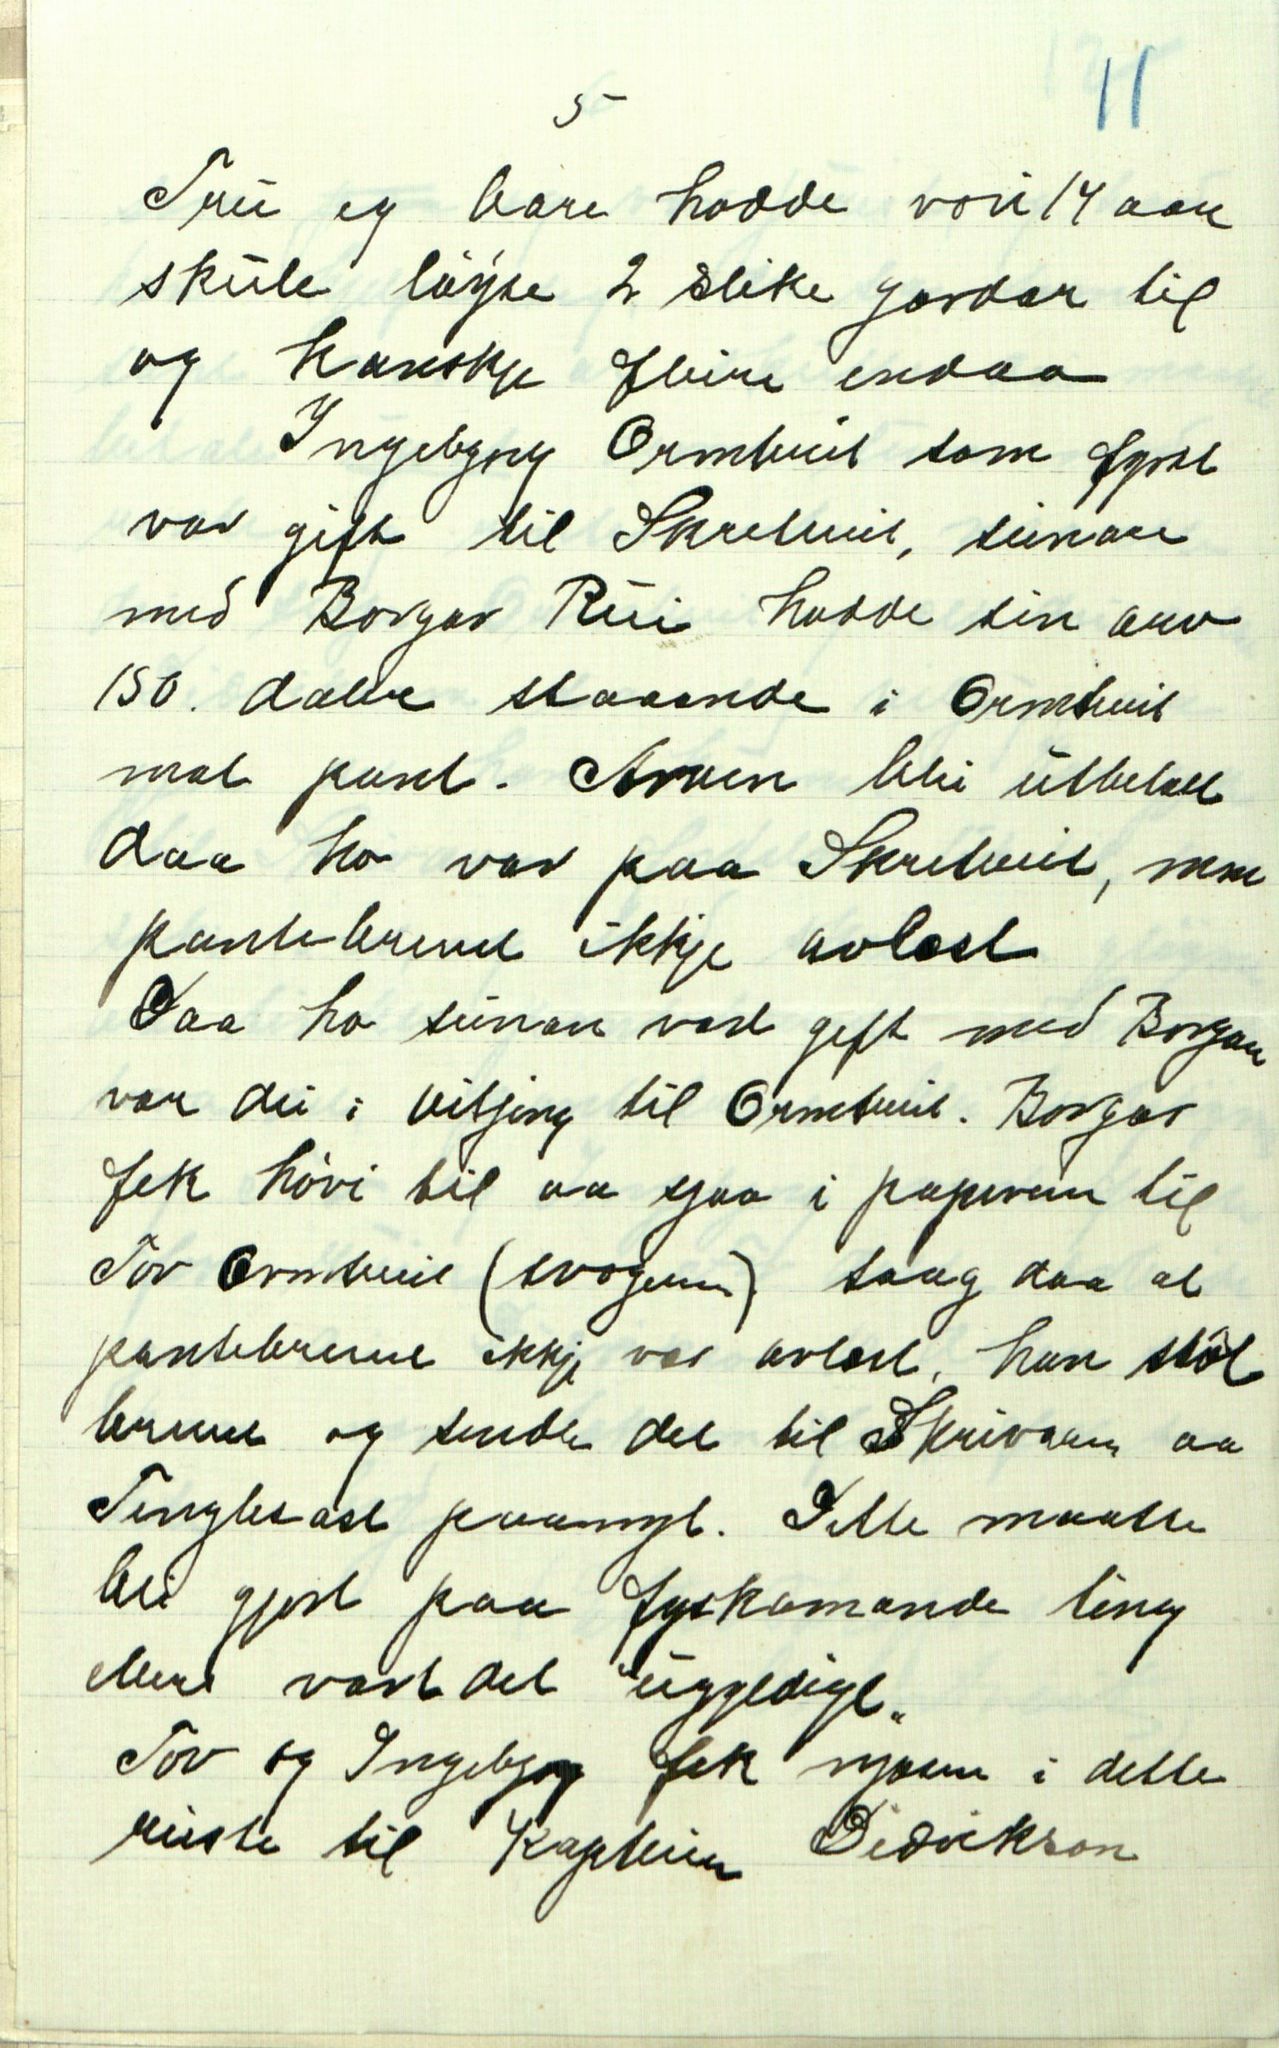 5
11
Trui eg bare hadde vori 14 aar
skule löyse 2 slike gardar til
og kanskje fleire endaa
Ingebjorg Ormtveit som fyrst
var gift til Skretveit, seinare
med Borgar Rui hadde sin arv
150. daler staaande i Ormtveit
mot pant. Arven blei utbetalt
daa ho var paa Skretveit, men
pantebrevet ikkje avlest
Daa ho seinare vart gift med Borgar
var dei i vitjing til Ormtveit. Borgar
fek hövi til aa sjaa i papiren til
Tov Ormtveit (svogeren) saag daa at
pantebreve ikkje var avlest, han stol
brevet og sendte det til Skrivaren aa
Tinglesast paanyt. Dette maatte
bli gjort paa fyskomande ting
ellers vart det "uggeldigt"
Tov og Ingebjorg fek njosen i dette
reiste til Kaptein Didrikson